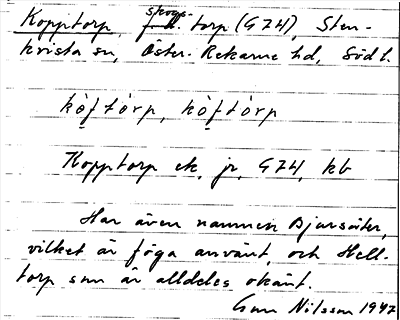 Kopptorp, skogs- torp (G74), Sten-
kvista sn, Öster-Rekarne hd, Södl.
kòftórp, kòftórp
Kopptorp ek, jr, G74, kb
Har även namnen Bjursäter,
vilket är föga använt, och Hell-
torp som är alldeles okänt.
Gun Nilsson 1947